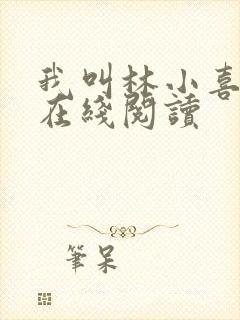 我叫林小喜
在綫閱讀
筆呆